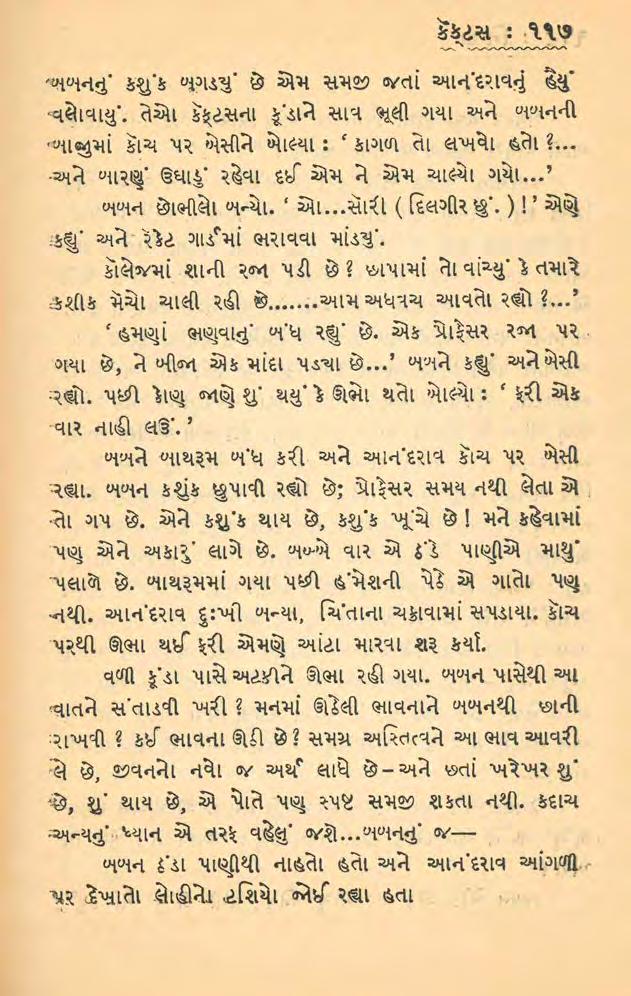 કૅક્ટસ : ૧૧૭
બબનનું કશુંક બગડ્યું છે એમ સમજી જતાં આનંદરાવનું હૈયું
વલોવાયું. તેઓ કૅક્ટસના કૂંડાને સાવ ભૂલી ગયા અને બબનની
બાજુમાં કૉચ પર બેસીને બોલ્યા : ‘ કાગળ તો લખવો હતો ?...
અને બારણું ઉઘાડું રહેવા દઈ એમ ને એમ ચાલ્યો ગયો...’
બબન છોભીલો બન્યો. ‘ ઓ...સૉરી ( દિલગીર છું. ) !’ એણે
કહ્યું અને રૅકેટ ગાર્ડમાં ભરાવવા માંડયું.
કૉલેજમાં શાની રજા પડી છે ? છાપામાં તો વાંચ્યું કે તમારે
કશીક મૅચો ચાલી રહી છે.......આમ અધવચ આવતો રહ્યો ?...’
‘ હમણાં ભણવાનું બંધ રહ્યું છે. એક પ્રોફેસર રજા પર
ગયા છે, ને બીજા એક માંદા પડયા છે...’ બબને કહ્યું અને બેસી
રહ્યો. પછી કોણ જાણે શું થયું કે ઊભો થતો બોલ્યો : ‘ ફરી એક
વાર નાહી લઉં. ’
બબને બાથરૂમ બંધ કરી અને આનંદરાવ કૉચ પર બેસી
રહ્યા. બબન કશુંક છુપાવી રહ્યો છે; પ્રોફેસર સમય નથી લેતા એ
તો ગપ છે. એને કશુંક થાય છે, કશુંક ખૂંચે છે ! મને કહેવામાં
પણ એને અકારું લાગે છે. બબ્બે વાર એ ઠંડે પાણીએ માથું
પલાળે છે. બાથરૂમમાં ગયા પછી હંમેશની પેઠે એ ગાતો પણ
નથી. આનંદરાવ દુઃખી બન્યા, ચિંતાના ચક્રાવામાં સપડાયા. કૉચ
પરથી ઊભા થઈ ફરી એમણે આંટા મારવા શરૂ કર્યા.
વળી કૂંડા પાસે અટકીને ઊભા રહી ગયા. બબન પાસેથી આ
વાતને સંતાડવી ખરી ? મનમાં ઊઠેલી ભાવનાને બબનથી છાની
રાખવી ? કઈ ભાવના ઊઠી છે ? સમગ્ર અસ્તિત્વને આ ભાવ આવરી
લે છે, જીવનનો નવો જ અર્થ લાધે છે – અને છતાં ખરેખર શું
છે, શું થાય છે, એ પોતે પણ સ્પષ્ટ સમજી શકતા નથી. કદાચ
અન્યનું ધ્યાન એ તરફ વહેલું જશે...બબનનું જ—
બબન ઠંડા પાણીથી નાહતો હતો અને આનંદરાવ આંગળી
પર દેખાતો લોહીનો ટશિયો જોઈ રહ્યા હતા